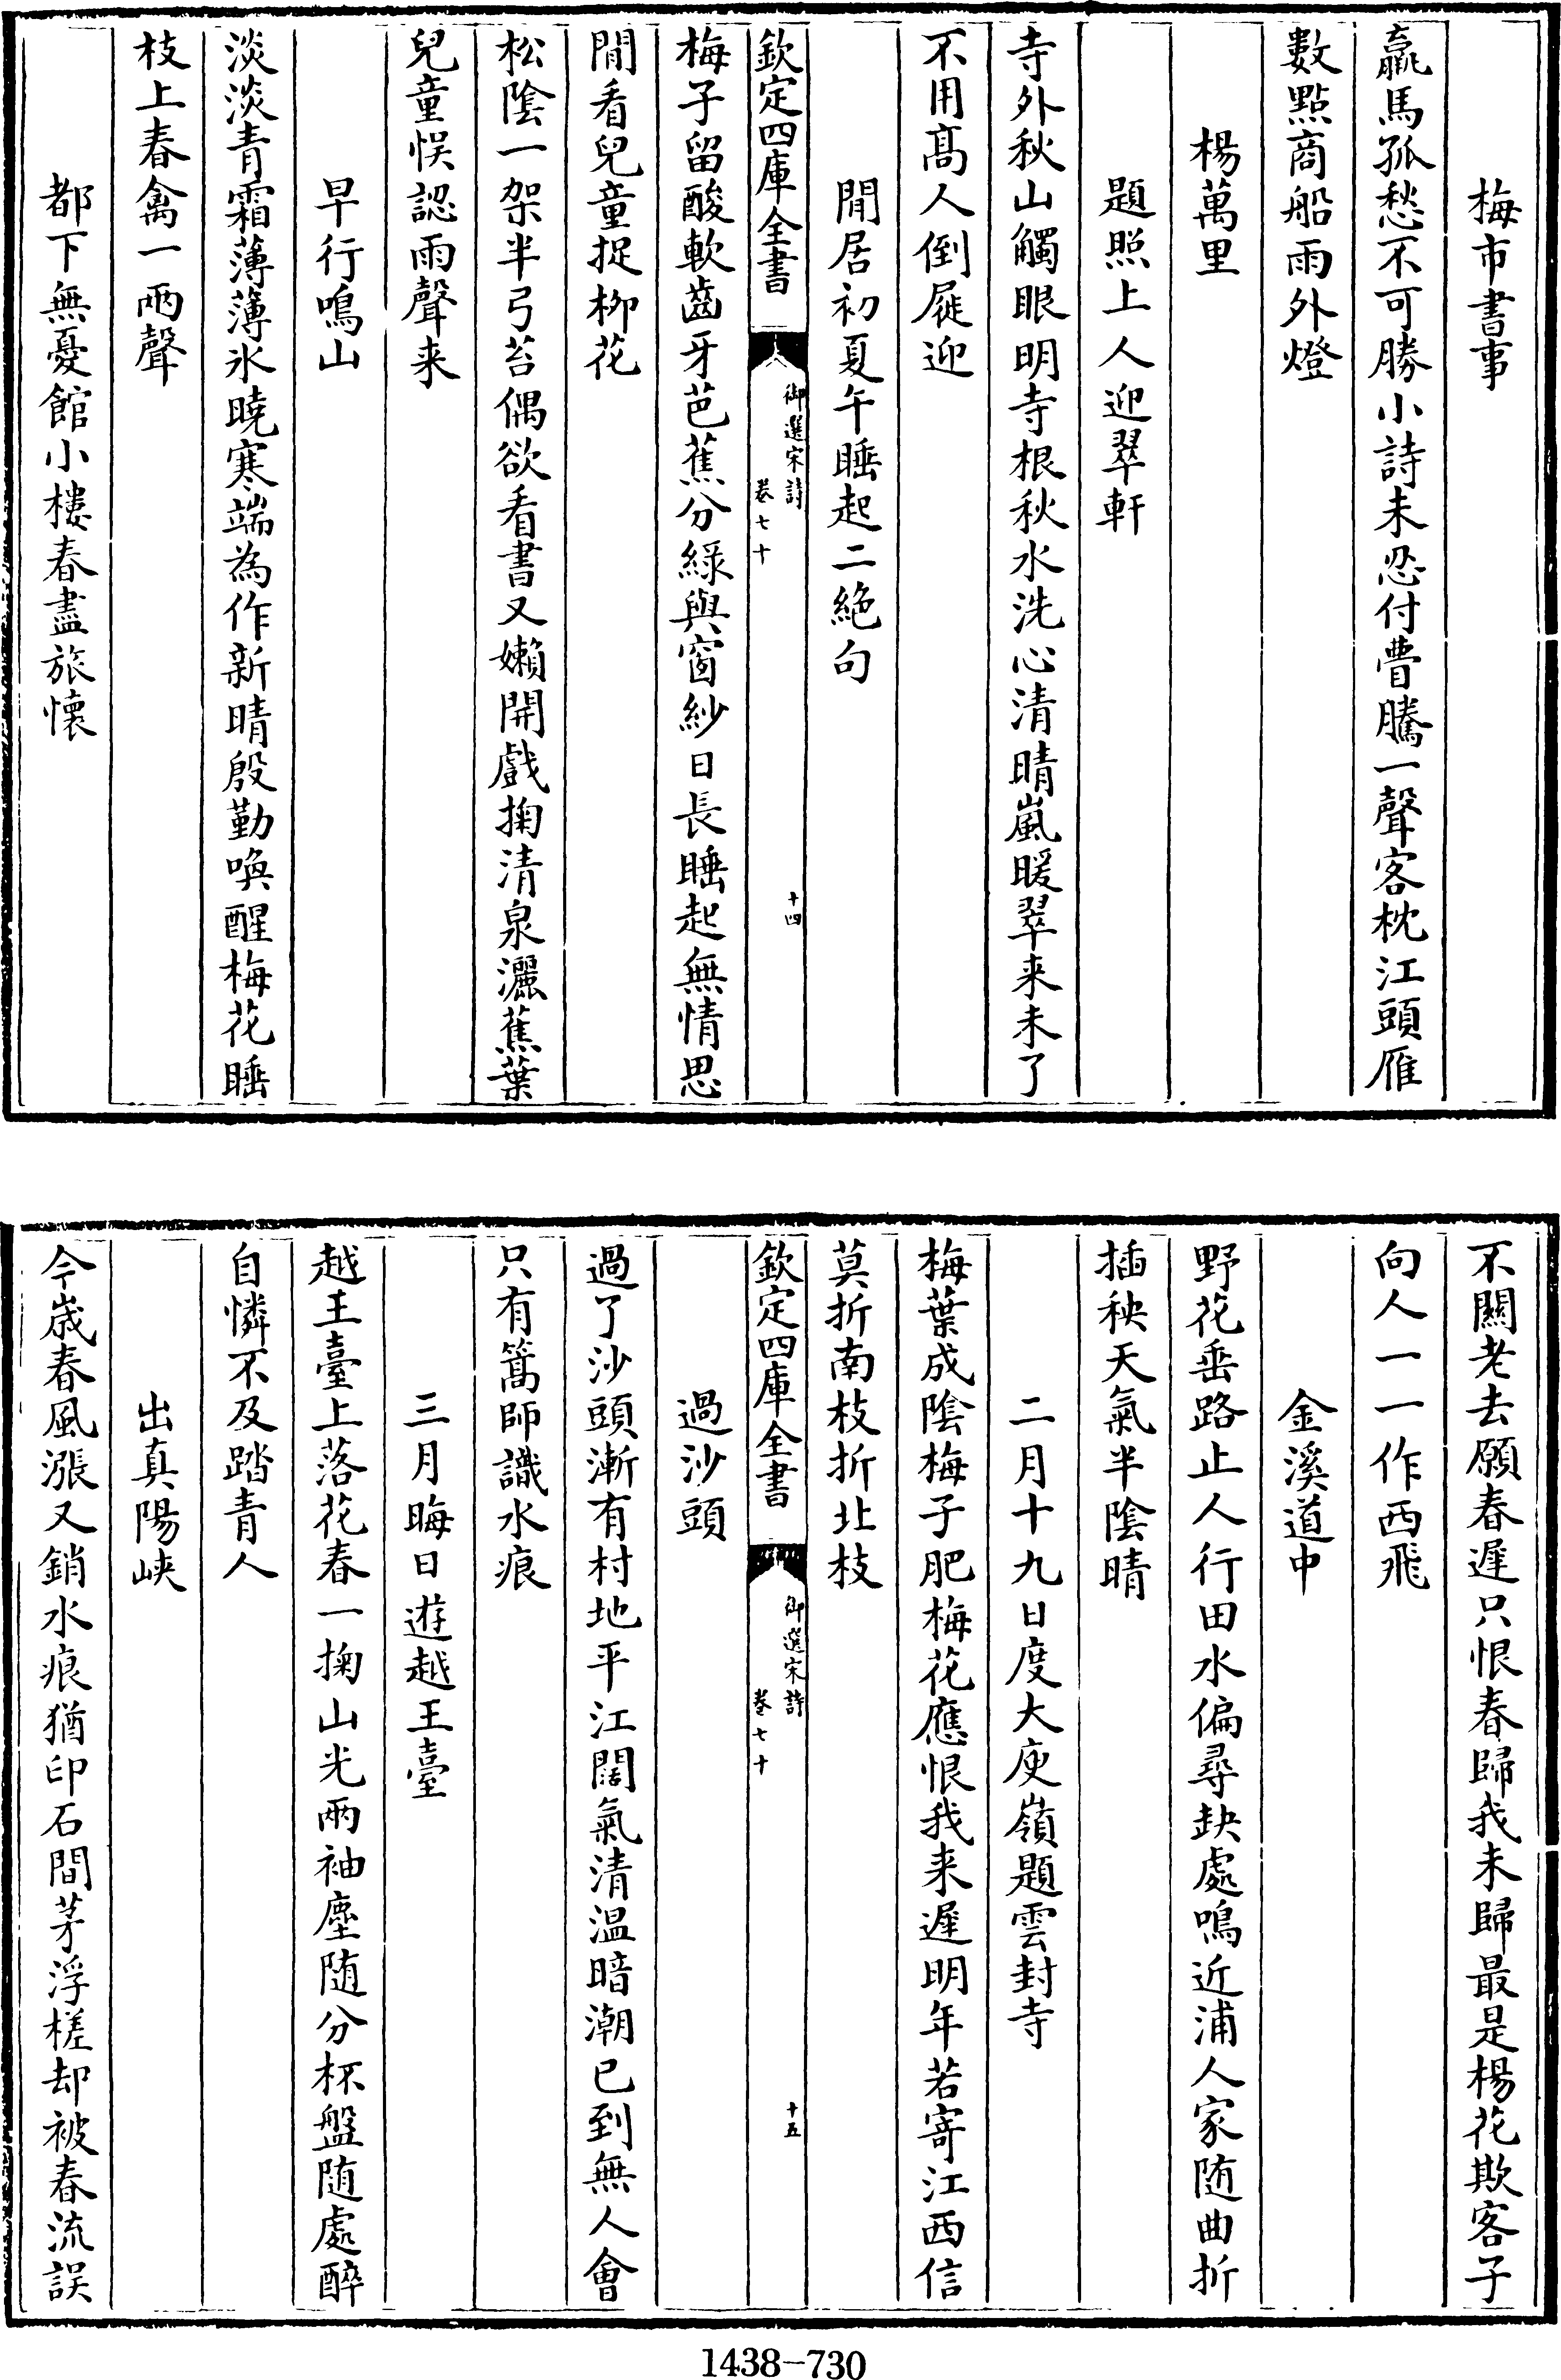 梅市書事
羸馬孤愁不可勝小詩未忍付瞢騰一聲客枕江頭雁
數點商船雨外燈
楊萬里
題照上人迎翠軒
寺外秋山觸眼明寺根秋水洗心清晴嵐暖翠来未了
不用髙人倒屣迎
閒居初夏午睡起二絶句
欽定四庫全書
御選宋詩
卷七十
十四
梅子留酸軟齒牙芭蕉分綠與窗紗日長睡起無情思
閒看兒童捉柳花
松陰一架半弓苔偶欲看書又嬾開戲掬清泉灑蕉葉
兒童悮認雨聲来
早行鳴山
淡淡青霜薄薄氷曉寒端為作新晴殷勤喚醒梅花睡
枝上春禽一兩聲
都下無憂館小樓春盡旅懷
不關老去願春遲只恨春歸我未歸最是楊花欺客子
向人一一作西飛
金溪道中
野花垂路止人行田水偏尋缺處鳴近浦人家随曲折
插秧天氣半陰晴
二月十九日度大庾嶺題雲封寺
梅葉成陰梅子肥梅花應恨我来遲明年若寄江西信
莫折南枝折北枝
欽定四庫全書
御選宋詩
卷七十
十五
過沙頭
過了沙頭漸有村地平江闊氣清温暗潮已到無人會
只有篙師識水痕
三月晦日遊越王臺
越王臺上落花春一掬山光兩袖塵随分杯盤随處醉
自憐不及踏青人
出真陽峽
今歲春風漲又銷水痕猶印石間茅浮槎却被春流誤
1438-730